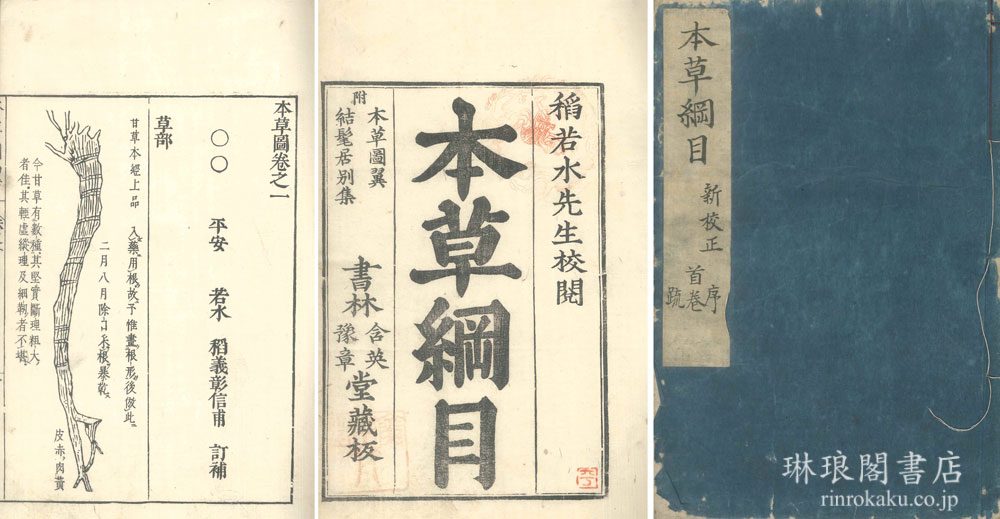 本草圖卷之一
○○　平安　若水　稻義彰信甫　訂補
草部
甘草本經上品
入藥用根故予惟畫根形後倣此
二月八月除日采根暴乾
今甘草有數種其堅實斷理粗大
者佳其輕虛縱理及細靭者不堪
皮赤肉黃
稻若水先生校閱
本草綱目
附
本草圖翼
結髦居別集
書林
含英
豫章
堂藏板
本草綱目
新校正
首卷
序
疏
琳琅閣書店
rinrokaku.co.jp